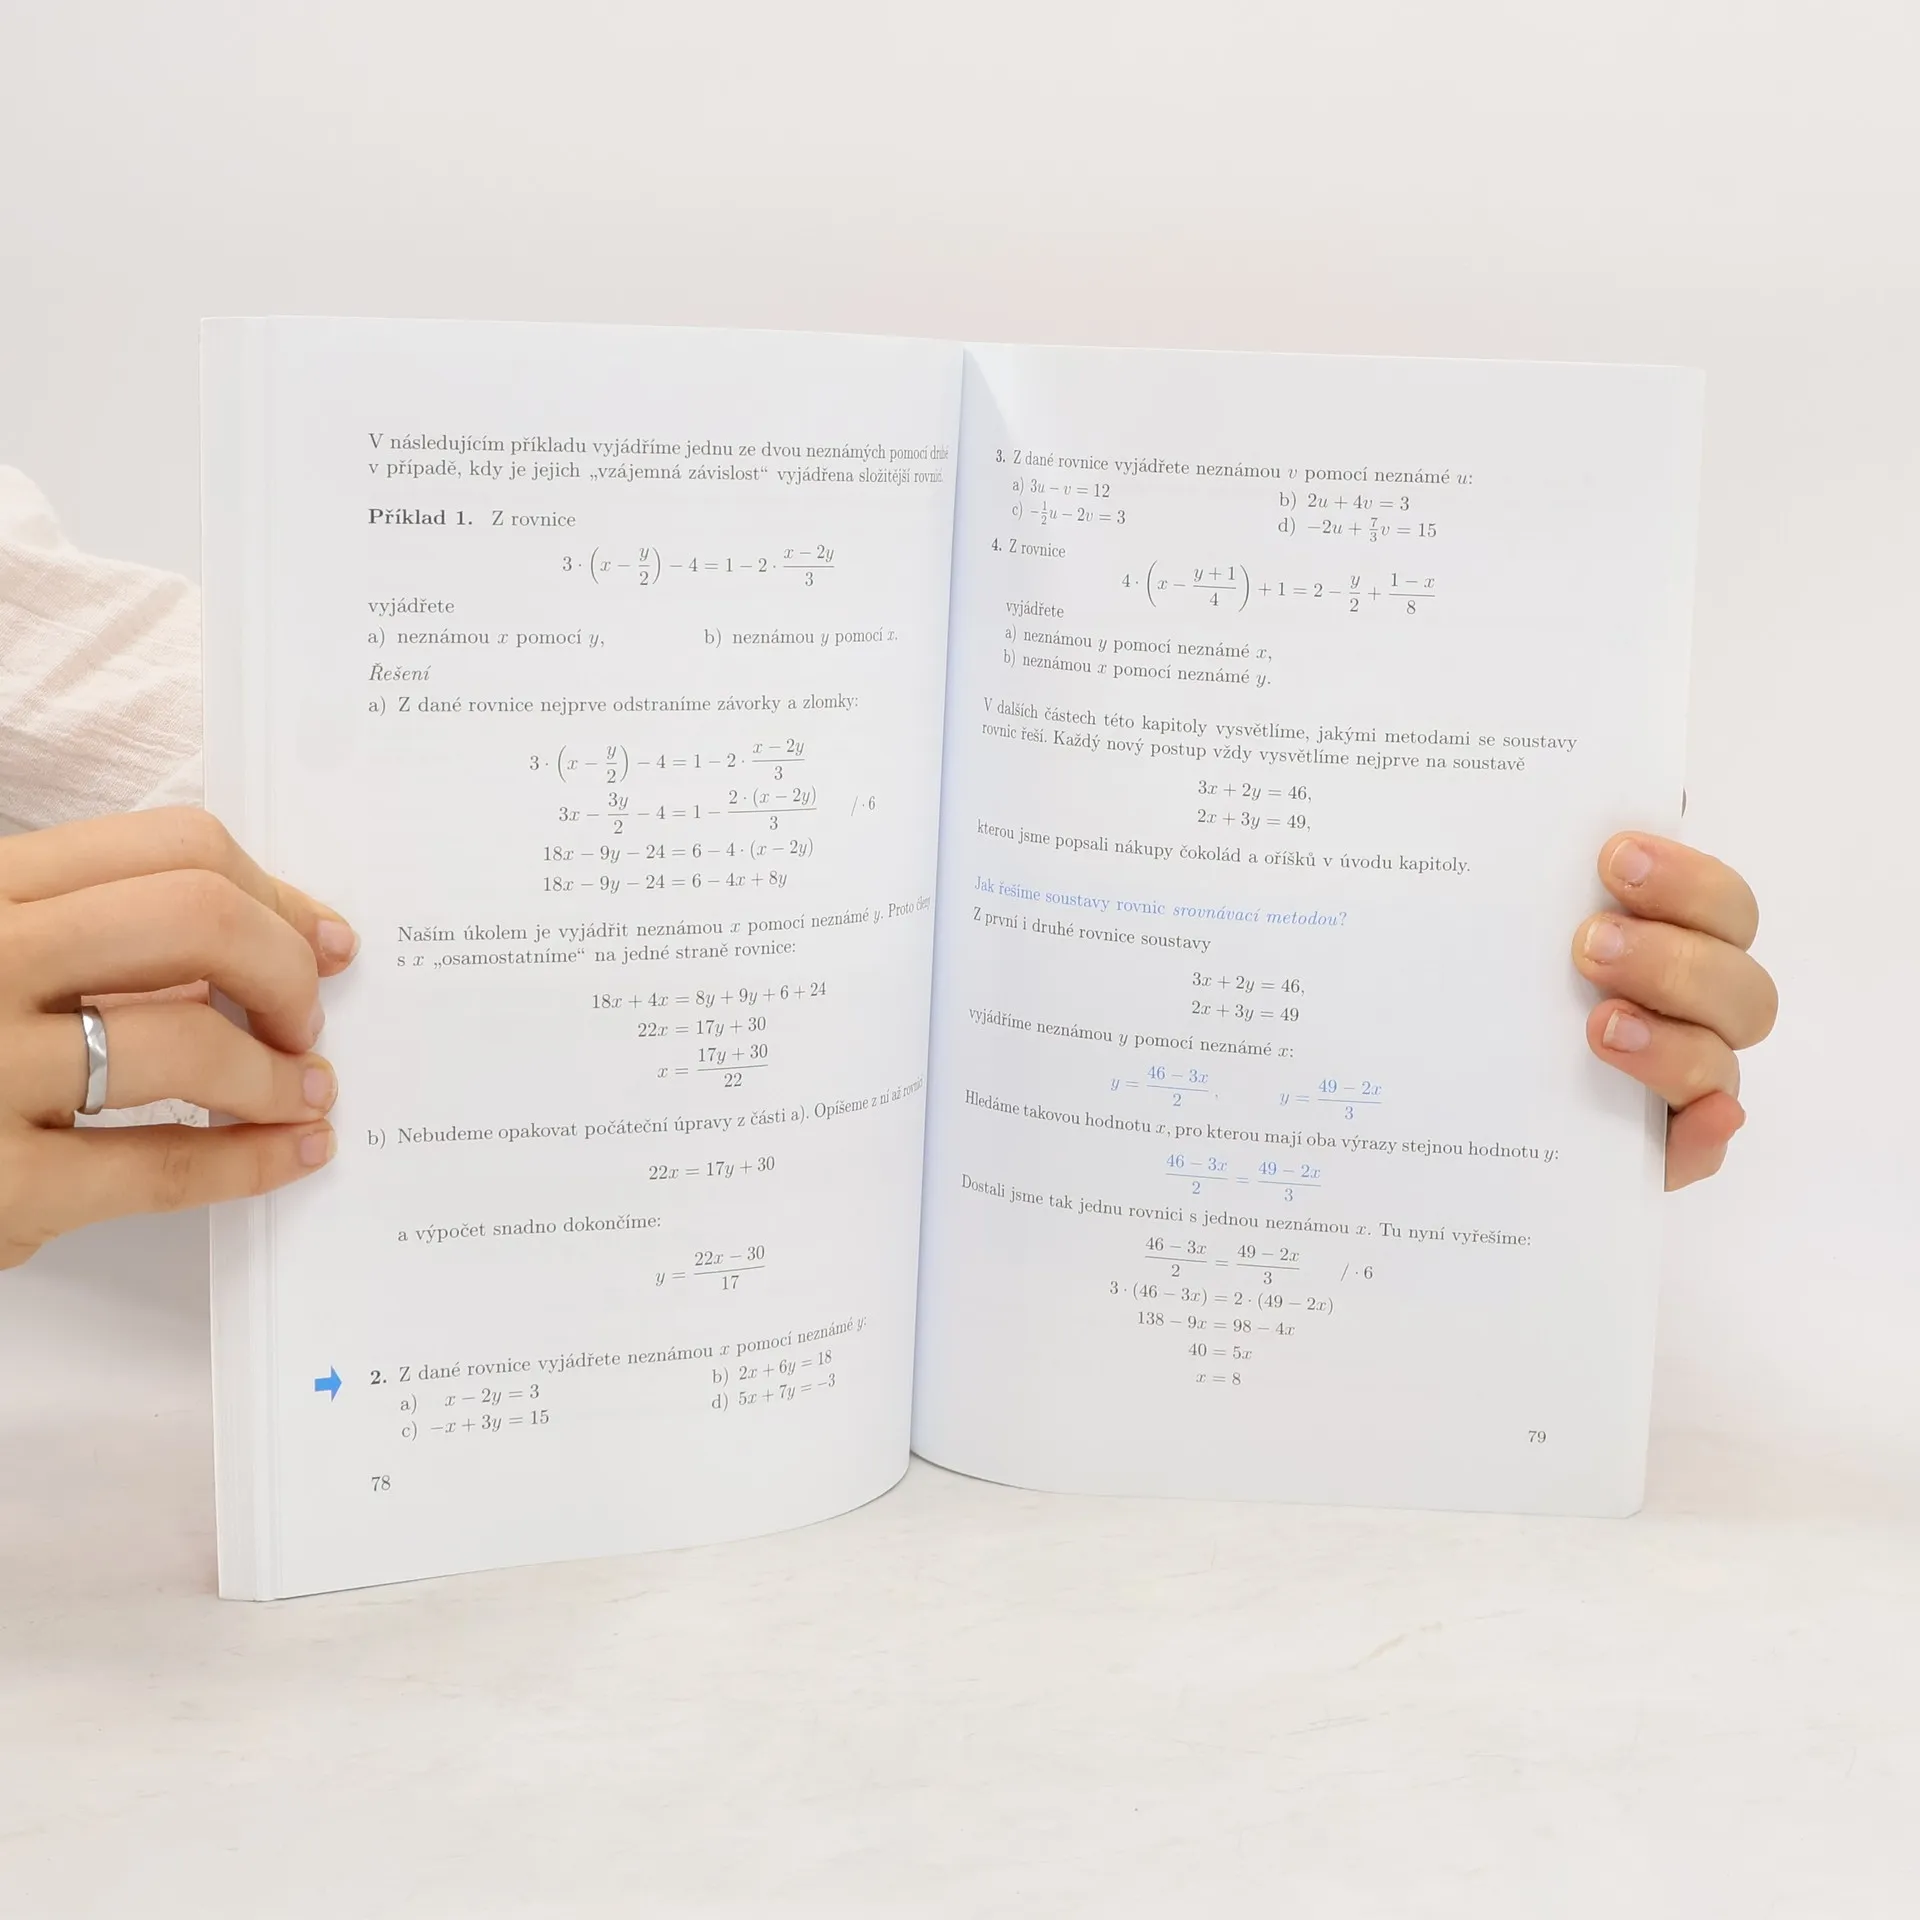 V následujícím příkladu vyjádříme jednu ze dvou neznámých pomocí druhé
v případě, kdy je jejich „vzájemná závislost“ vyjádřena složitější rovnicí.
Příklad 1. Z rovnice
3 · (x − y/2) − 4 = 1 − 2 · (x − 2y)/3
vyjádřete
a) neznámou x pomocí y, b) neznámou y pomocí x.
Řešení
a) Z dané rovnice nejprve odstraníme závorky a zlomky:
3 · (x − y/2) − 4 = 1 − 2 · (x − 2y)/3
3x − 3y/2 − 4 = 1 − 2 · (x − 2y)/3 / · 6
18x − 9y − 24 = 6 − 4 · (x − 2y)
18x − 9y − 24 = 6 − 4x + 8y
Naším úkolem je vyjádřit neznámou x pomocí neznámé y. Proto členy
s x „osamostatníme“ na jedné straně rovnice:
18x + 4x = 8y + 9y + 6 + 24
22x = 17y + 30
x = (17y + 30)/22
b) Nebudeme opakovat počáteční úpravy z části a). Opíšeme z ní až rovnici
22x = 17y + 30
a výpočet snadno dokončíme:
y = (22x − 30)/17
2. Z dané rovnice vyjádřete neznámou x pomocí neznámé y:
a) x − 2y = 3 b) 2x + 6y = 18
c) −x + 3y = 15 d) 5x + 7y = −3
78
3. Z dané rovnice vyjádřete neznámou v pomocí neznámé u:
a) 3u − v = 12 b) 2u + 4v = 3
c) −1/2u − 2v = 3 d) −2u + 7/3v = 15
4. Z rovnice
4 · (x − (y + 1)/4) + 1 = 2 − y/2 + (1 − x)/8
vyjádřete
a) neznámou y pomocí neznámé x,
b) neznámou x pomocí neznámé y.
V dalších částech této kapitoly vysvětlíme, jakými metodami se soustavy
rovnic řeší. Každý nový postup vždy vysvětlíme nejprve na soustavě
3x + 2y = 46,
2x + 3y = 49,
kterou jsme popsali nákupy čokolád a oříšků v úvodu kapitoly.
Jak řešíme soustavy rovnic srovnávací metodou?
Z první i druhé rovnice soustavy
3x + 2y = 46,
2x + 3y = 49
vyjádříme neznámou y pomocí neznámé x:
y = (46 − 3x)/2, y = (49 − 2x)/3
Hledáme takovou hodnotu x, pro kterou mají oba výrazy stejnou hodnotu y:
(46 − 3x)/2 = (49 − 2x)/3
Dostali jsme tak jednu rovnici s jednou neznámou x. Tu nyní vyřešíme:
(46 − 3x)/2 = (49 − 2x)/3 / · 6
3 · (46 − 3x) = 2 · (49 − 2x)
138 − 9x = 98 − 4x
40 = 5x
x = 8
79